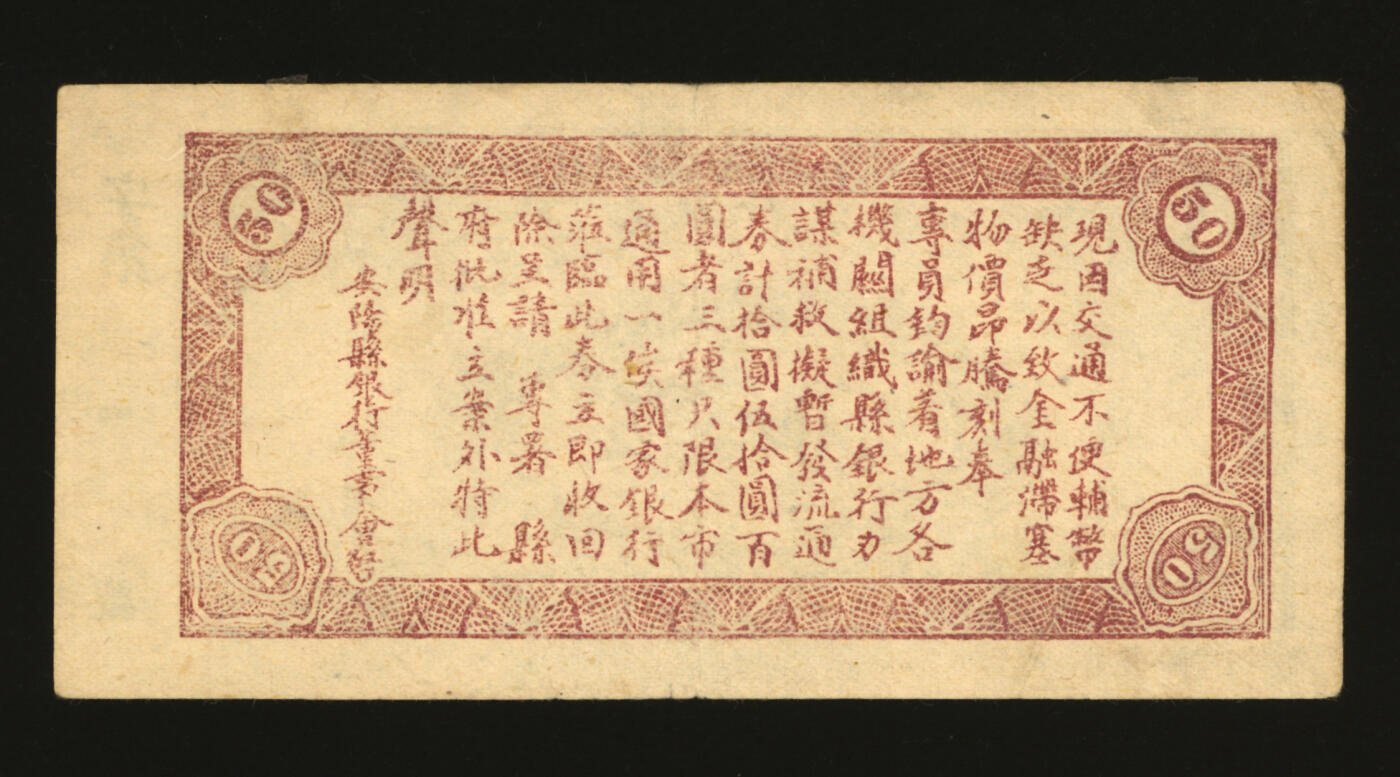 現因交通不便輔幣
缺乏以致金融滯塞
物價昂騰刻奉
專員鈞諭着地方各
機關組織縣銀行力
謀補救擬暫發流通
券計拾圓伍拾圓百
圓者三種只限本市
通用一俟國家銀行
蒞臨此券立即收回
除呈請 專署 縣
府批准立案外特此
聲明
安陰縣銀行董事會啓
50
50
50
50